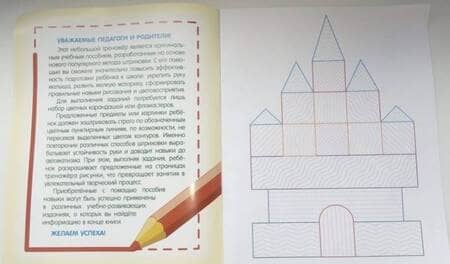 УВАЖАЕМЫЕ ПЕДАГОГИ И РОДИТЕЛИ!
Этот небольшой тренажёр является оригиналь-
ным учебным пособием, разработанным на основе
нового популярного метода штриховки. С его помо-
щью вы сможете значительно повысить эффектив-
ность подготовки ребёнка к школе: укрепить руку
малыша, развить мелкую моторику, сформировать
правильные навыки рисования и цветовосприятия.
Для выполнения заданий потребуется лишь
набор цветных карандашей или фломастеров.
Предложенные предметы или картинки ребё-
нок должен заштриховать строго по обозначенным
цветным пунктирным линиям, по возможности, не
пересекая выделенных цветом контуров. Именно
повторение различных способов штриховки выра-
батывает устойчивость руки и доводит навыки до
автоматизма. При этом, выполняя задания, ребё-
нок раскрашивает предложенные на страницах
тренажёра рисунки, что превращает занятия в
увлекательный творческий процесс.
Приобретённые с помощью пособия
навыки могут быть успешно применены
в различных учебно-развивающих
изданиях, о которых вы найдёте
информацию в конце книги.
ЖЕЛАЕМ УСПЕХА!